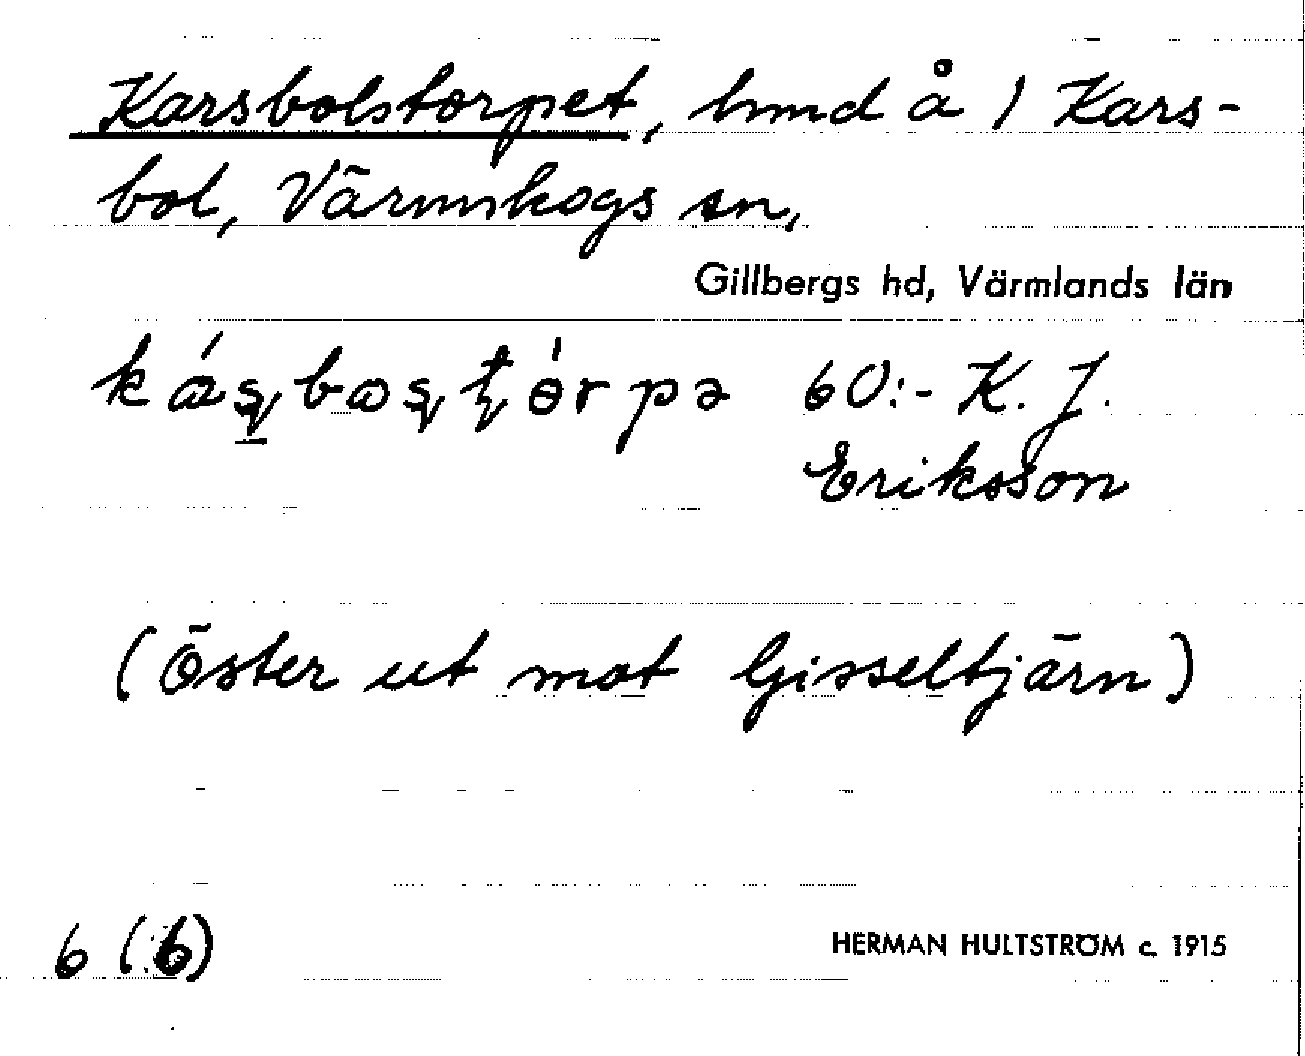 Karsbolstorpet, hmd å 1 Kars-
bol, Värmskogs sn,
Gillbergs hd, Värmlands län
60:- K. J.
Eriksson
(Öster ut mot Gisseltjärn)
6 (6)
HERMAN HULTSTRÖM c. 1915